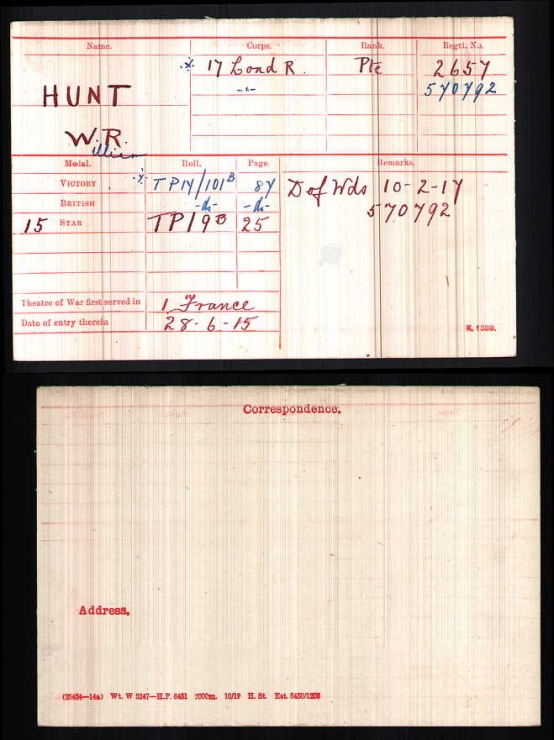 Name. Corps. Rank. Regtl. No.
HUNT 17 Lond R. Pte 2657
-"- 570792
W.R.
illiam
Medal. Roll. Page. Remarks.
VICTORY TP17/101B 87 D of Wds 10-2-17
BRITISH -do- -do- 570792
15 STAR TP/9B 25
Theatre of War first served in 1 France
Date of entry therein 28-6-15
K. 1380.
Correspondence.
Address.
Wt. W 5347—H.P. 6451 2000m. 10/19 H. St.